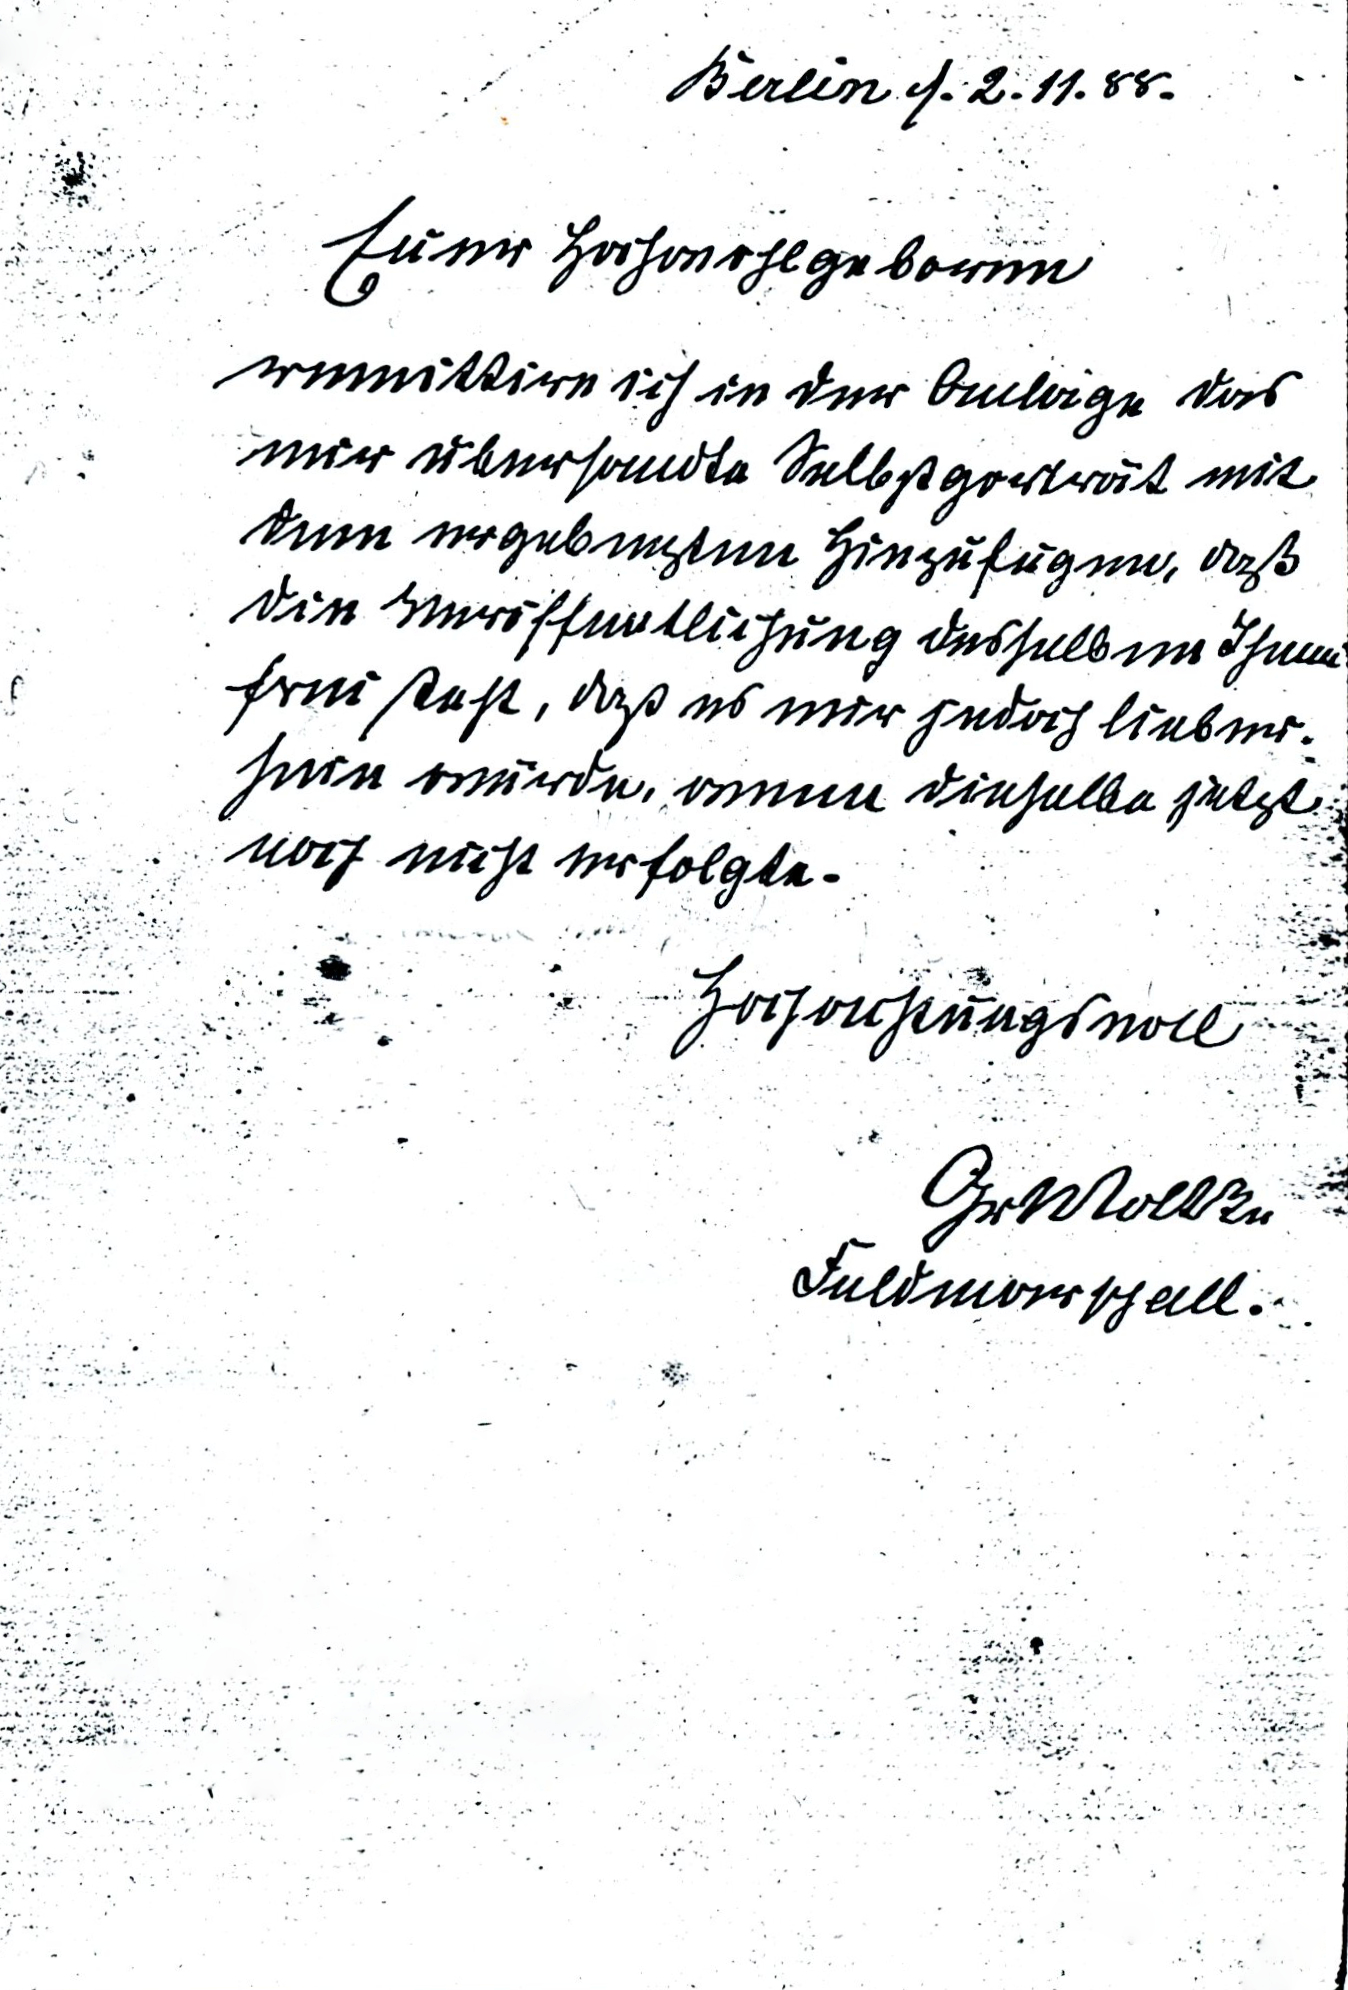 Berlin d. 2. 11. 88.
Euer Hochwohlgeboren
remittire ich in der Anlage das
mir übersandte Selbstportrait mit
dem ergebensten Hinzufügen, daß
die Veröffentlichung desselben Ihnen
frei steht, daß es mir jedoch lieber
sein würde, wenn dieselbe jetzt
noch nicht erfolgte.
Hochachtungsvoll
Gr Moltke
Feldmarschall.